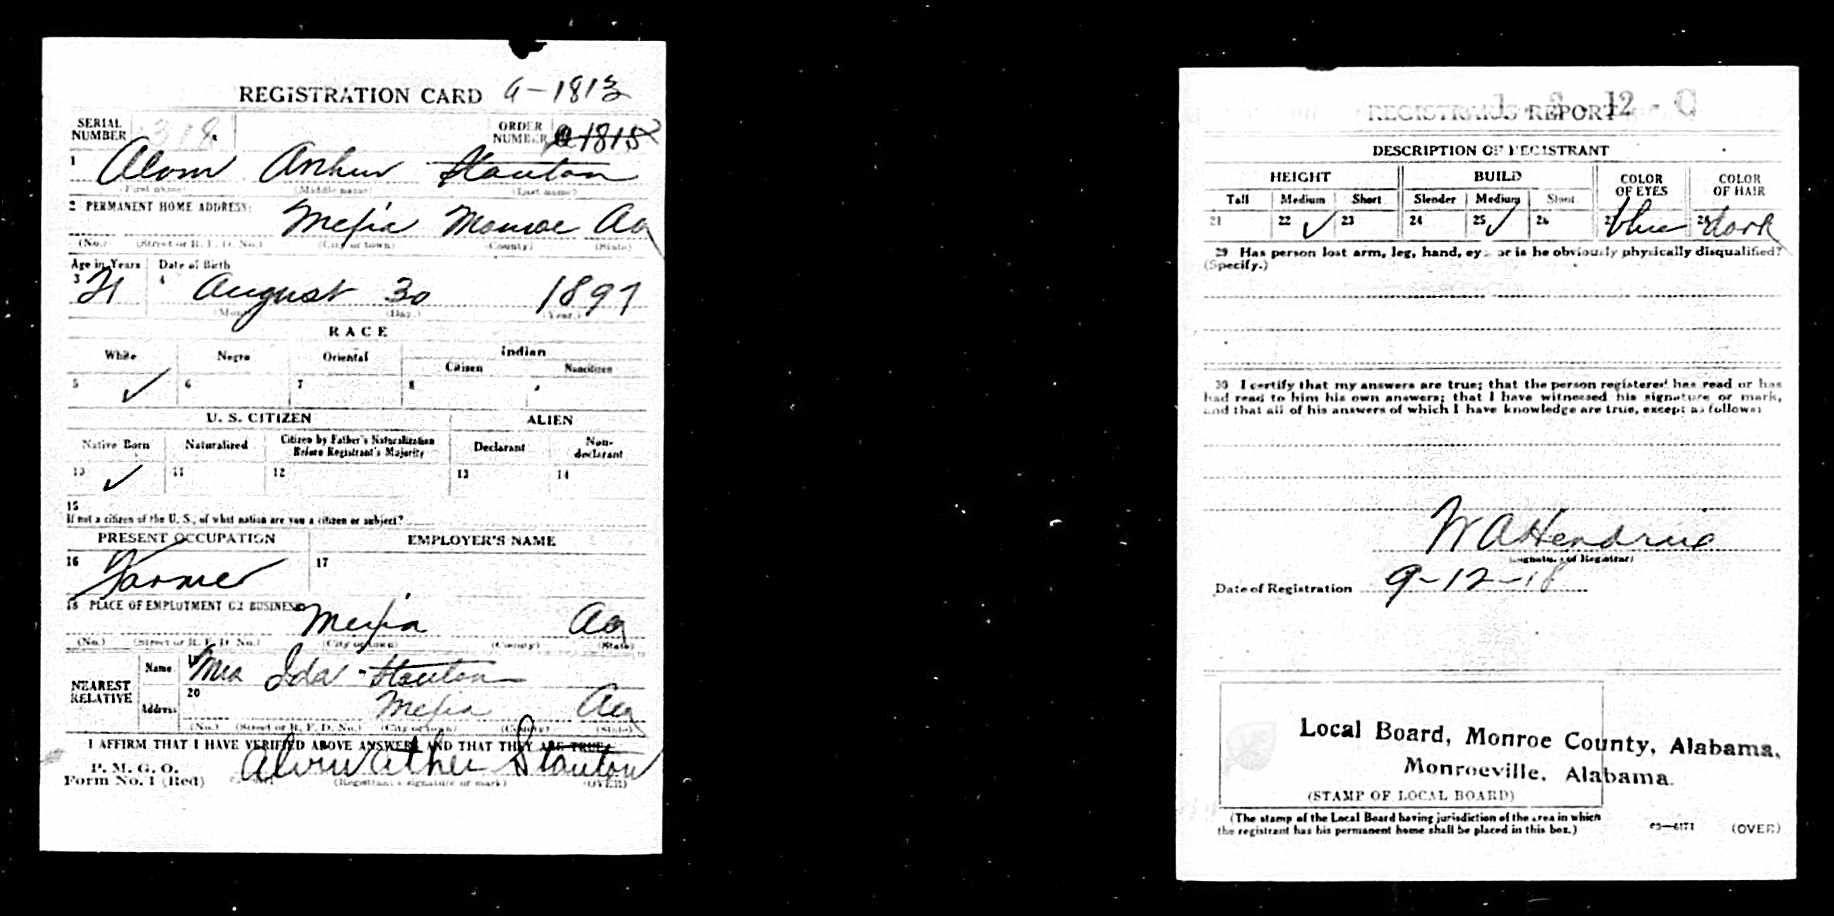 REGISTRATION CARD a-1813
SERIAL NUMBER 318 ORDER NUMBER a1815
1 Alvin Arthur Stanton
(First name) (Middle name) (Last name)
2 PERMANENT HOME ADDRESS:
Mexia Monroe Ala
(No.) (Street or R. F. D. No.) (City or town) (County) (State)
Age in Years Date of Birth
3 21 4 August 30 1897
(Month.) (Day.) (Year.)
RACE
White Negro Oriental Indian
Citizen Noncitizen
5 ✓ 6 7 8
U. S. CITIZEN ALIEN
Native Born Naturalized Citizen by Father's Naturalization Before Registrant's Majority Declarant Non-declarant
10 ✓ 11 12 13 14
15
If not a citizen of the U. S., of what nation are you a citizen or subject?
PRESENT OCCUPATION EMPLOYER'S NAME
16 Farmer 17
18 PLACE OF EMPLOYMENT OR BUSINESS:
Mexia Ala
(No.) (Street or R. F. D. No.) (City or town) (County) (State)
NEAREST RELATIVE
Name 19 Mrs Ida Stanton
Address 20 Mexia Ala
(No.) (Street or R. F. D. No.) (City or town) (County) (State)
I AFFIRM THAT I HAVE VERIFIED ABOVE ANSWERS AND THAT THEY ARE TRUE
P. M. G. O.
Form No. 1 (Red) Alvin Athur Stanton
(Registrant's signature or mark) (OVER)
REGISTRAR'S REPORT 12 - C
DESCRIPTION OF REGISTRANT
HEIGHT BUILD COLOR OF EYES COLOR OF HAIR
Tall Medium Short Slender Medium Stout
21 22 ✓ 23 24 25 ✓ 26 27 blue 28 dark
29 Has person lost arm, leg, hand, eye, or is he obviously physically disqualified?
(Specify.)
30 I certify that my answers are true; that the person registered has read or has
had read to him his own answers; that I have witnessed his signature or mark,
and that all of his answers of which I have knowledge are true, except as follows:
W A Hendrix
(Signature of Registrar)
Date of Registration 9-12-18
Local Board, Monroe County, Alabama,
Monroeville, Alabama.
(STAMP OF LOCAL BOARD)
(The stamp of the Local Board having jurisdiction of the area in which
the registrant has his permanent home shall be placed in this box.)
03—6171 (OVER)